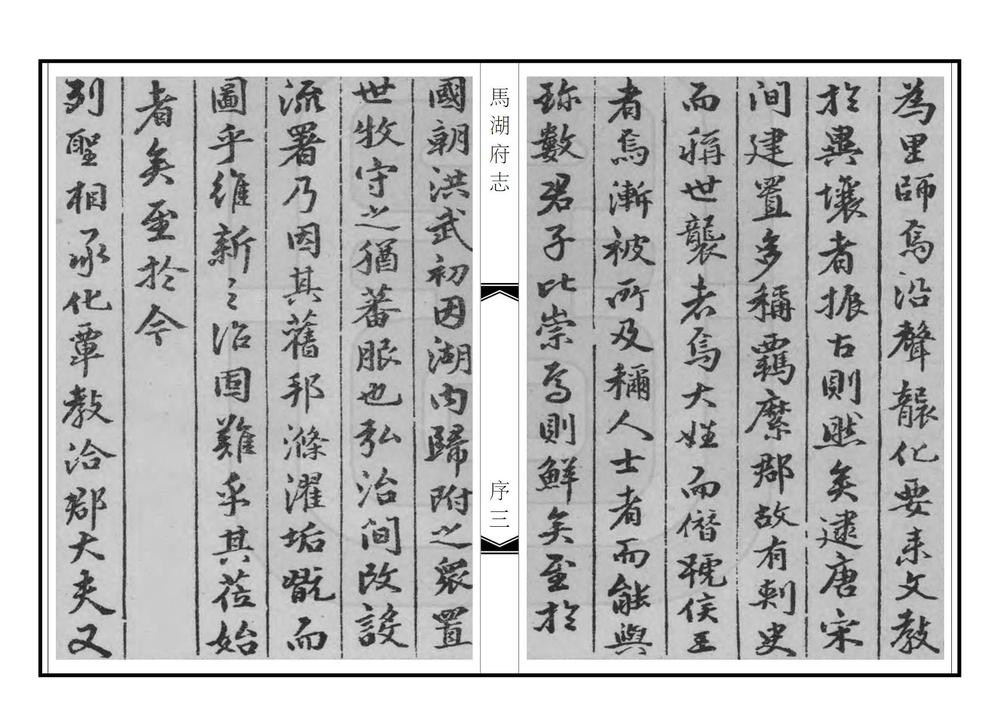 為里師焉沿聲襲化要素文教
於輿壤者振古則然矣逮唐宋
間建置多稱羈縻郡故有刺史
而稱世襲者焉大姓而僭號侯王
者焉漸被所及稱人士者而能與
珎數君子比崇焉則鮮矣至於
馬湖府志
序三
國朝洪武初因湖內歸附之衆置
世牧守之猶蕃服也弘治間改設
流署乃因其舊邦滌濯垢翫而
圖乎維新之治固難乎其莅始
者矣至於今
列聖相承化覃教洽郡大夫又